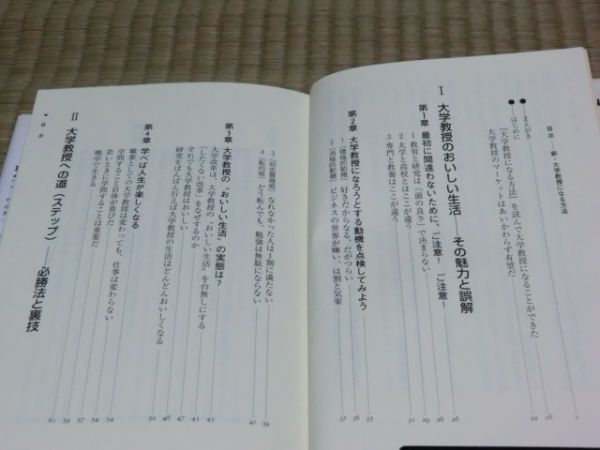 目次──新・大学教授になる方法
●──まえがき
『大学教授になる方法』を読んで大学教授になることができた 1
●──はじめに
大学教授のマーケットはあいかわらず有望だ
Ⅰ 大学教授のおいしい生活──その魅力と誤解
第1章 最初に間違わないために、ご注意! ご注意! 26
1 教育と研究は「頭の良さ」で決まらない 26
2 大学と高校とはここが違う 29
3 専門と教養はここが違う 31
第2章 大学教授になろうとする動機を点検してみよう 35
1 [積極的動機] 好きだからなる、だがつらい 36
2 [消極的動機] ビジネスの世界が嫌い、は割と気楽 37
3 [初志貫徹組] なれなかった人は1割に満たない 39
4 [転向組] どう転んでも、勉強は無駄にならない 41
第3章 大学教授の"おいしい生活"の実態は? 43
大学改革は、大学教授の"おいしい生活"を台無しにする 43
「したくない改革」をなぜするのか 46
それでも大学教授はおいしい 47
研究をばんばん行えば大学教授の生活はどんどんおいしくなる 52
第4章 学べば人生が楽しくなる 54
職業としての大学教授は変わっても、仕事は変わらない 54
学問すること自体が喜びだ
若いときに学問することは重要だ
晩学で生きる 59
Ⅱ 大学教授への道(ステップ)──必勝法と裏技 61
▼目次